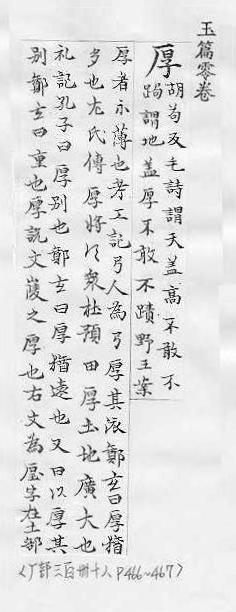 玉篇零卷
厚胡茍反毛詩謂天盖高不敢不
跼謂地盖厚不敢不蹟野王案
厚者不薄也考工記弓人為弓厚其液鄭玄曰厚猶
多也左氏傳厚将得衆杜預曰厚土地廣大也
礼記孔子曰厚別也鄭玄曰厚猶遠也又曰以厚其
別鄭玄曰重也厚説文之厚也古文為垕字在土部
〈厂部三百卌十八 P466~467〉